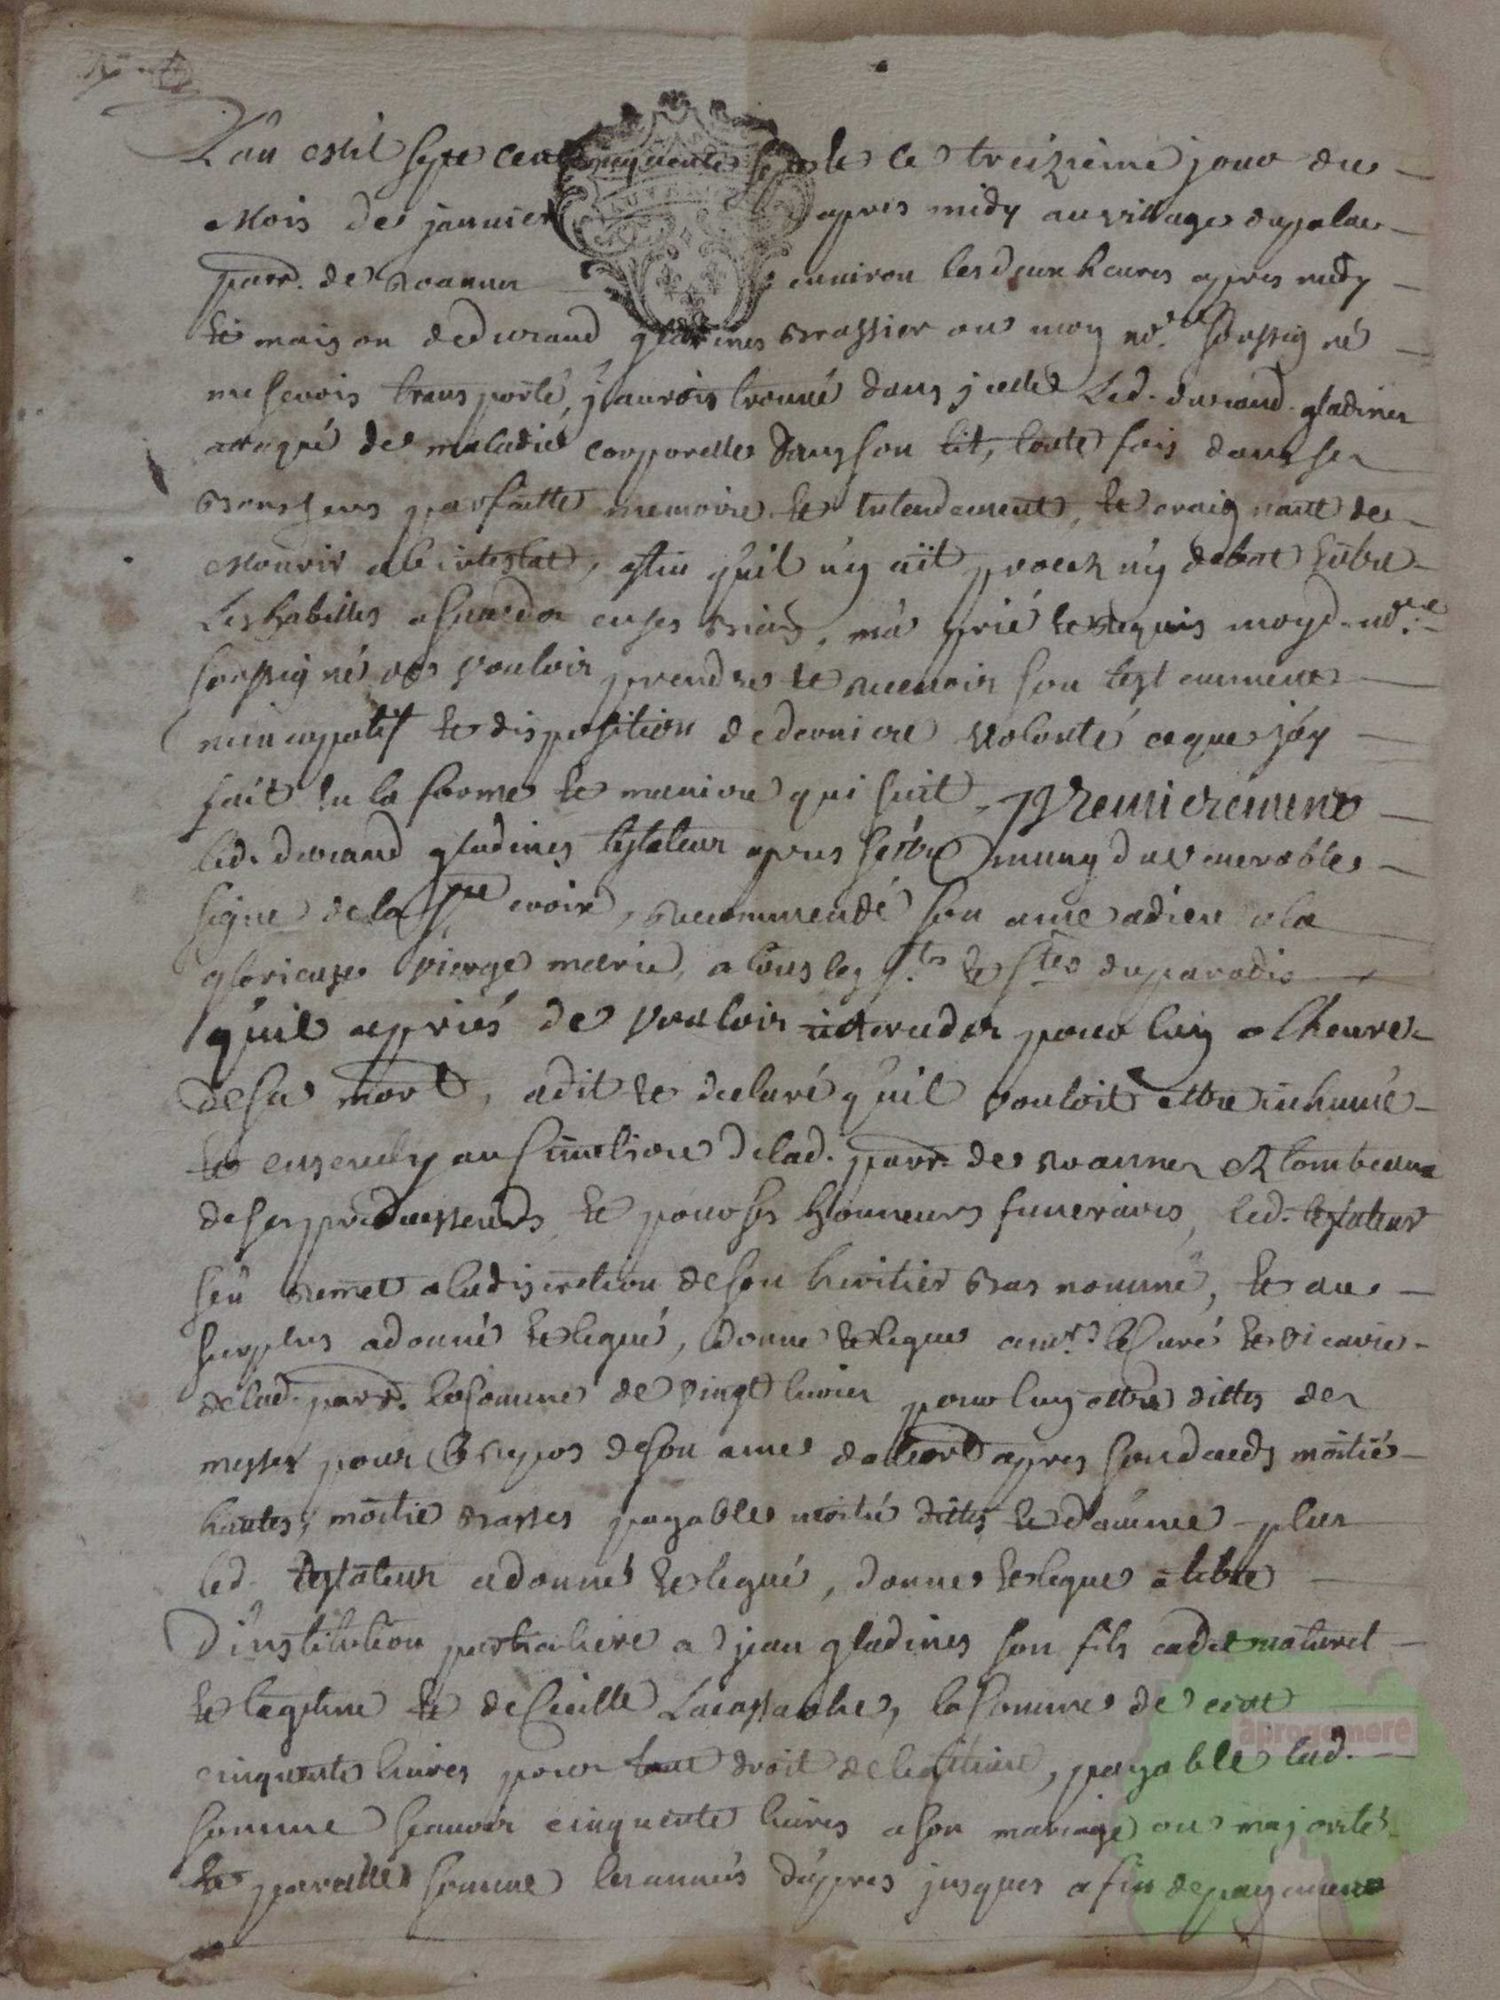 L'an mil sept cent cinquante sept et le treizieme jour du
mois de janvier apres midy au village du palat
parr. de Roannes environ les deux heures apres midy
et maison de durand gladines Brassier ou moy nore. soussigné
me serois transporté, j'aurois trouvé dans jcelle Led. durand gladines
attaqué de maladie corporelle dans son lit, toute fois dans ses
Bons sens parfaitte memoire et entendement, et craignant de
mourir ab intestat, affin qu'il n'y ait procez n'y debat entre
Les habilles a succeder en ses Biens, m'a prié et Requis moyd. nore.
soussigné de vouloir prendre et recevoir son testamment
nuncupatif et disposition de derniere volonté ce que j'ay
fait en la forme et maniere qui suit. Premierement
led. durand gladines testateur apres s'etre muny du venerable
signe de la Ste croix, Recommendé son ame a dieu a la
glorieuse vierge marie, a tous les Sts et Stes du paradis
qu'il a priés de vouloir interceder pour luy a l'heure
de sa mort, a dit et declaré qu'il vouloit ettre inhumé
et ensevely au simetiere de lad. parr. de Roannes et tombeaux
de ses predecesseurs, et pour ses honneurs funeraires, led. testateur
s'en Remet a la discretion de son heritier Bas nommé, et au
surplus a donné et legué, donne et legue a mr. le Curé et vicaire
de lad. parr. la somme de vingt livres pour luy ettre dittes des
messes pour le Repos de son ame d'abord apres son deceds moitié
hautes, moitié Basses payable moitié dittes et d'aumne plus
led. testateur a donné et legué, donne et legue a titre
d'institution particuliere a jean gladines son fils cadet naturel
et legitime et de Cicille Lacassanhe, la somme de cent
cinquente livres pour tout droit de legitime, payable lad.
somme scauoir cinquente livres a son mariage ou majorité
et pareille somme les années d'apres jusques a fin de payement
aprogemere